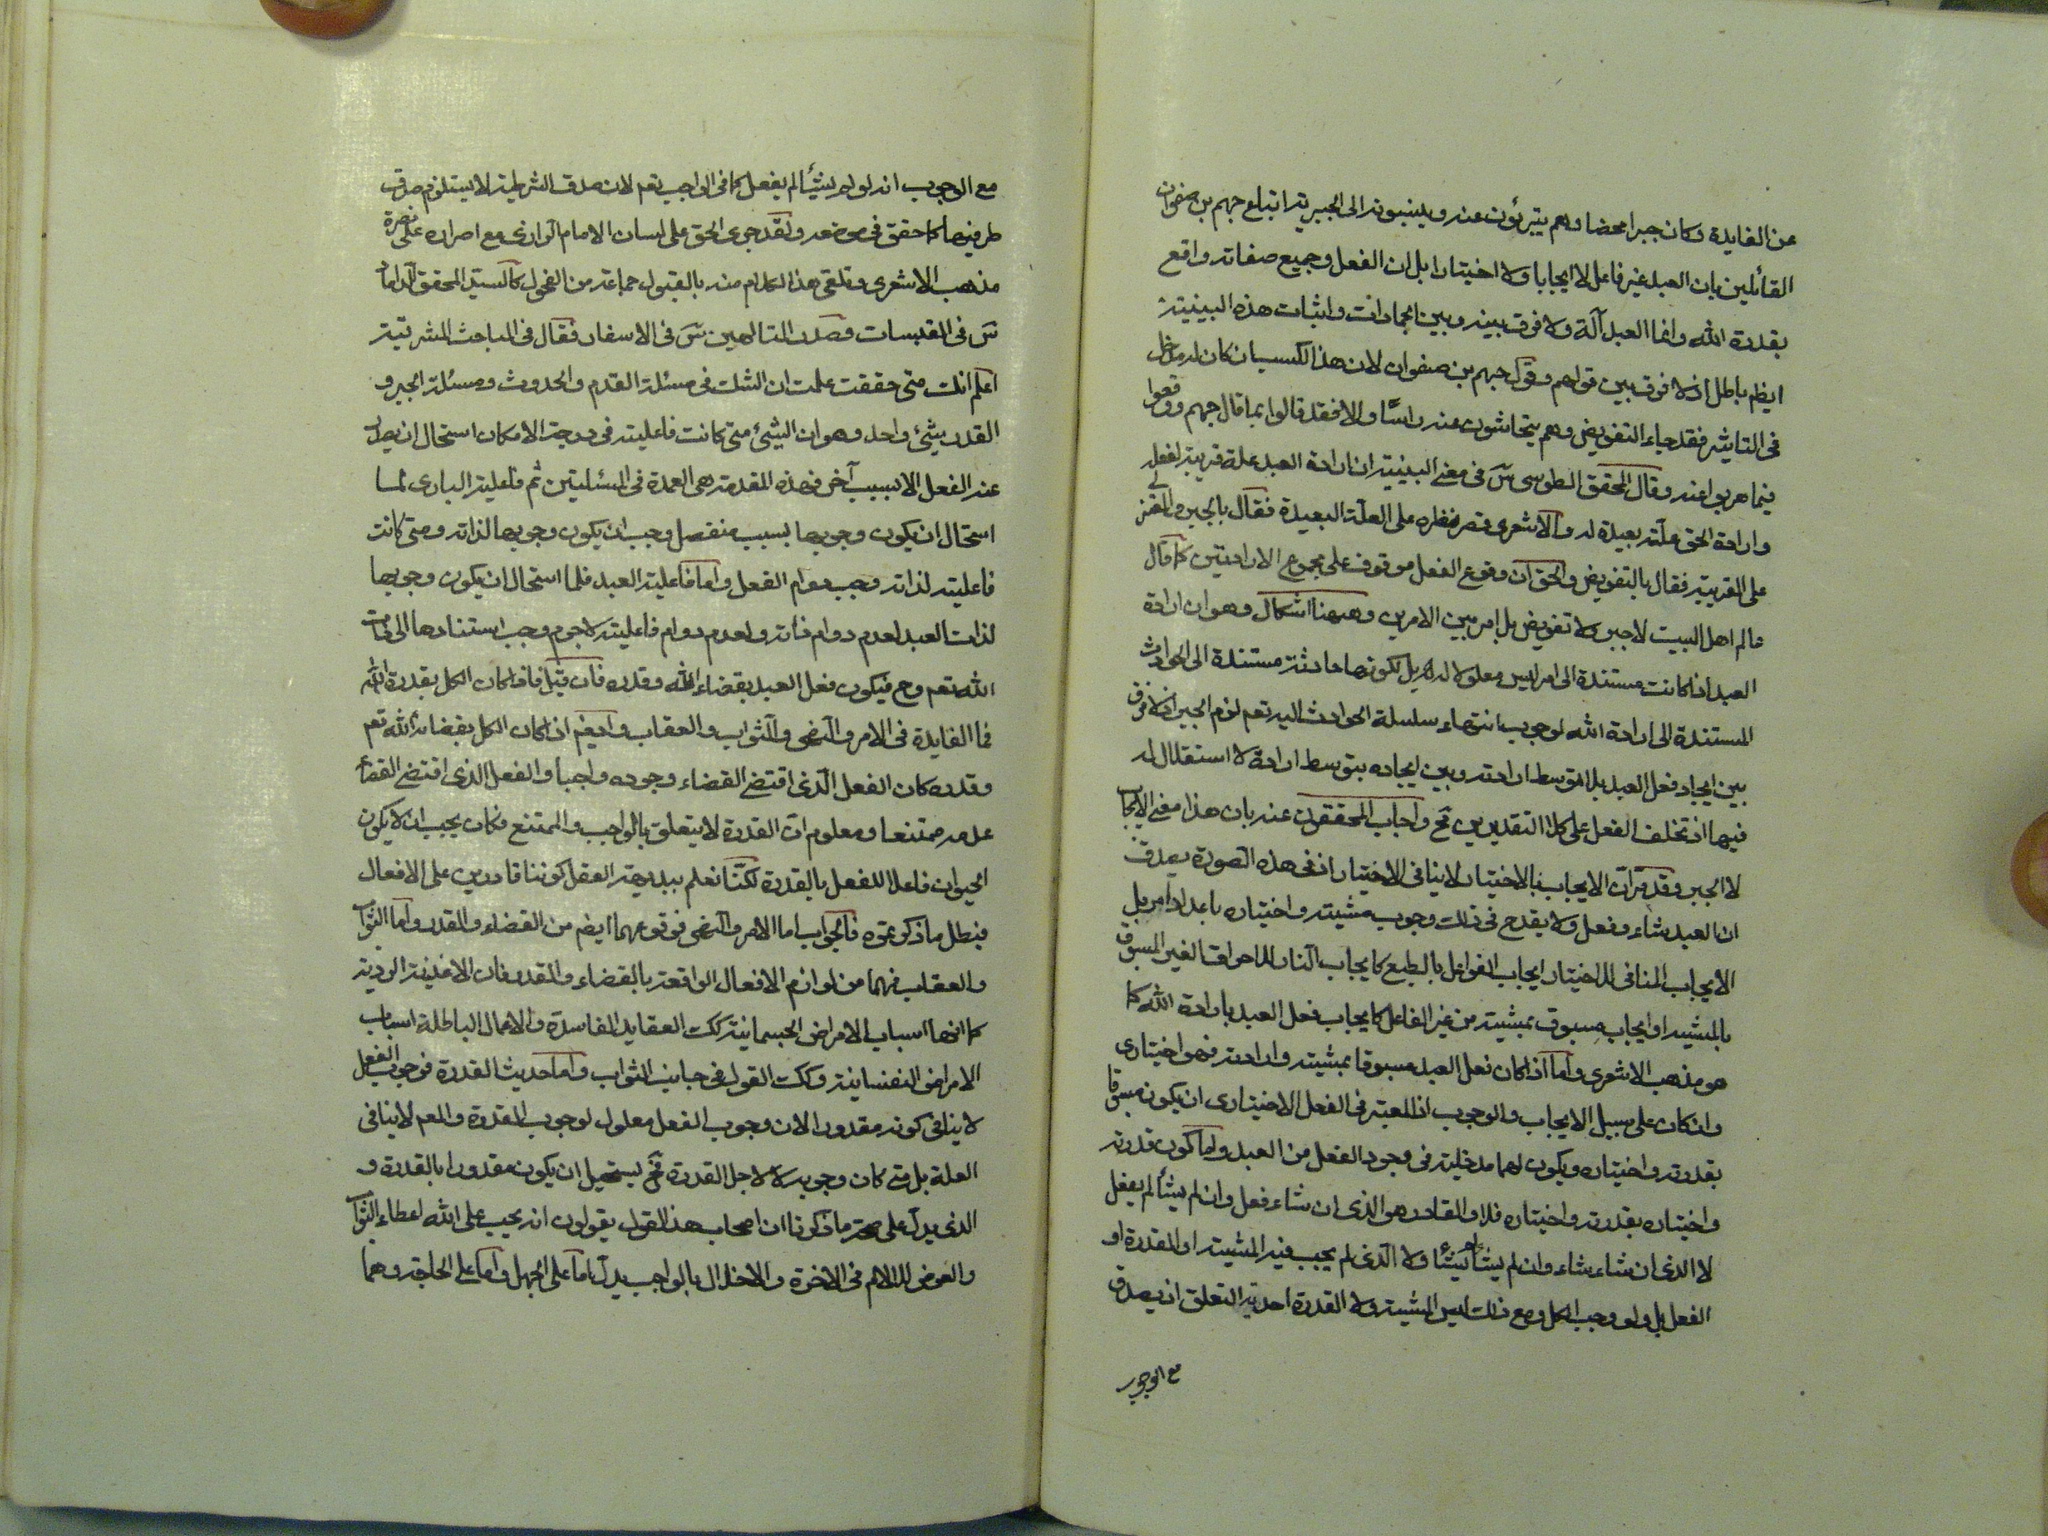 عن الفايدة وكان جبرا محضا وهم يتبرؤن عنه وينسبونه الى الجبرية اتباع جهم بن صفوان
القائلين بان العبد غير فاعل لا ايجابا ولا اختيارا بل ان الفعل وجميع صفاته واقع
بقدرة الله وانما العبد آلة ولا فرق بينه وبين الجمادات واثبات هذه البينية
ايضا باطل اذ لا فرق بين قولهم وقول جهم بن صفوان لان هذا الكسب ان كان له مدخل
فى التاثير فقد جاء التفويض وهم يتحاشون عنه راسا والا فقد قالوا بما قال جهم ووقعوا
فيما هربوا عنه وقال المحقق الطوسى سَ فى معنى البينية ان ارادة العبد علة قريبة لفعله
وارادة الحق علة بعيدة له والاشعرى قصر نظره على العلة البعيدة فقال بالجبر والمعتزلى
على القريبة فقال بالتفويض والحق ان وقوع الفعل موقوف على مجموع الارادتين كما قال
عالم اهل البيت لا جبر ولا تفويض بل امر بين الامرين وههنا اشكال وهو ان ارادة
العبد اذا كانت مستندة الى امر ليس معلولا له بل لكونها حادثة مستندة الى الحوادث
المستندة الى ارادة الله لوجوب انتهاء سلسلة الحوادث اليه تعم لزم الجبر اذ لا فرق
بين ايجاد فعل العبد بلا توسط ارادته وبين ايجاده بتوسط ارادة لا استقلال له
فيها اذ تخلف الفعل على كلا التقديرين مح واجاب المحققون عنه بان هذا معنى الايجاب
لا الجبر وقد مر ان الايجاب بالاختيار لا ينافى الاختيار اذ فى هذه الصورة يصدق
ان العبد شاء وفعل ولا يقدح فى ذلك وجوب مشيته واختياره باعداد امر بل
الايجاب المنافى للاختيار ايجاب الفواعل بالطبع كايجاب النار للاحراق الغير المسبوق
بالمشيه او ايجاب مسبوق بمشيته من غير الفاعل كايجاب فعل العبد بارادة الله كما
هو مذهب الاشعرى واما اذا كان فعل العبد مسبوقا بمشيته وارادته فهو اختيارى
وان كان على سبيل الايجاب والوجوب اذ المعتبر فى الفعل الاختيارى ان يكون مسبوقا
بقدرته واختياره ويكون لهما مدخلية فى وجود الفعل من العبد واما كون قدرته
واختياره بقدرته واختياره فلا والقادر هو الذى ان شاء فعل وان لم يشأ لم يفعل
لا الذى ان شاء شاء وان لم يشأ لم يشأ ولا الذى لم يجب فيه المشية او القدرة او
الفعل بل ولو وجب الكل ومع ذلك ليس المشية ولا القدرة احدية التعلق اذ يصدق
مع الوجوب
مع الوجوب انه لو لم يشأ لم يفعل كما فى الواجب تعم لان صدق الشرطية لا يستلزم صدق
طرفيها كما حقق فى موضعه ولقد جرى الحق على لسان الامام الرازى مع اصراره على نصرة
مذهب الاشعرى وتلقى هذا الكلام منه بالقبول جماعة من الفحول كالسيد المحقق الداماد
سَ فى القبسات وصدر المتالهين سَ فى الاسفار فقال فى المباحث المشرقية
اعلم انك متى حققت علمت ان الشك فى مسئلة القدم والحدوث ومسئلة الجبر و
القدر بشئ واحد وهو ان الشئ متى كانت فاعليته فى درجة الامكان استحال ان يصدر
عنه الفعل الا بسبب آخر فهذه المقدمة هى العمدة فى المسئلتين ثم فاعلية البارى لما
استحال ان يكون وجوبها بسبب منفصل وجب ان يكون وجوبها لذاته ومتى كانت
فاعليته لذاته وجب دوام الفعل واما فاعلية العبد فلما استحال ان يكون وجوبها
لذات العبد لعدم دوام ذاته ولعدم دوام فاعليته لا جرم وجب استنادها الى ذات
الله تعم وح فيكون فعل العبد بقضاء الله وقدره فان قيل فاذا كان الكل بقدرة الله
فما الفايدة فى الامر والنهى والثواب والعقاب وايضا اذا كان الكل بقضاء الله تعم
وقدره كان الفعل الذى اقتضى القضاء وجوده واجبا والفعل الذى اقتضى القضاء
عدمه ممتنعا ومعلوم ان القدرة لا يتعلق بالواجب والممتنع فكان يجب ان لا يكون
الحيوان فاعلا للفعل بالقدرة لكنا نعلم ببديهة العقل كوننا قادرين على الافعال
فبطل ما ذكرتموه فالجواب اما الامر والنهى فوقوعهما ايضا من القضاء والقدر واما الثواب
والعقاب فهما من لوازم الافعال الواقعة بالقضاء والقدر فان الاغذية الردية
كما انها اسباب الامراض الجسمانية كك العقايد الفاسدة والاعمال الباطلة اسباب
الامراض النفسانية وكك القول فى جانب الثواب واما حديث القدرة فوجوب الفعل
لا ينافى كونه مقدورا لان وجوب الفعل معلول لوجوب القدرة والمعم لا ينافى
العلة بل متى كان وجوبه لا لاجل القدرة فح يستحيل ان يكون مقدورا بالقدرة و
الذى يدل على صحة ما ذكرنا ان اصحاب هذا القول يقولون انه يجب على الله اعطاء الثواب
والعوض للالام فى الاخرة والاخلال بالواجب يدل اما على الجهل واما على الحاجة وهما